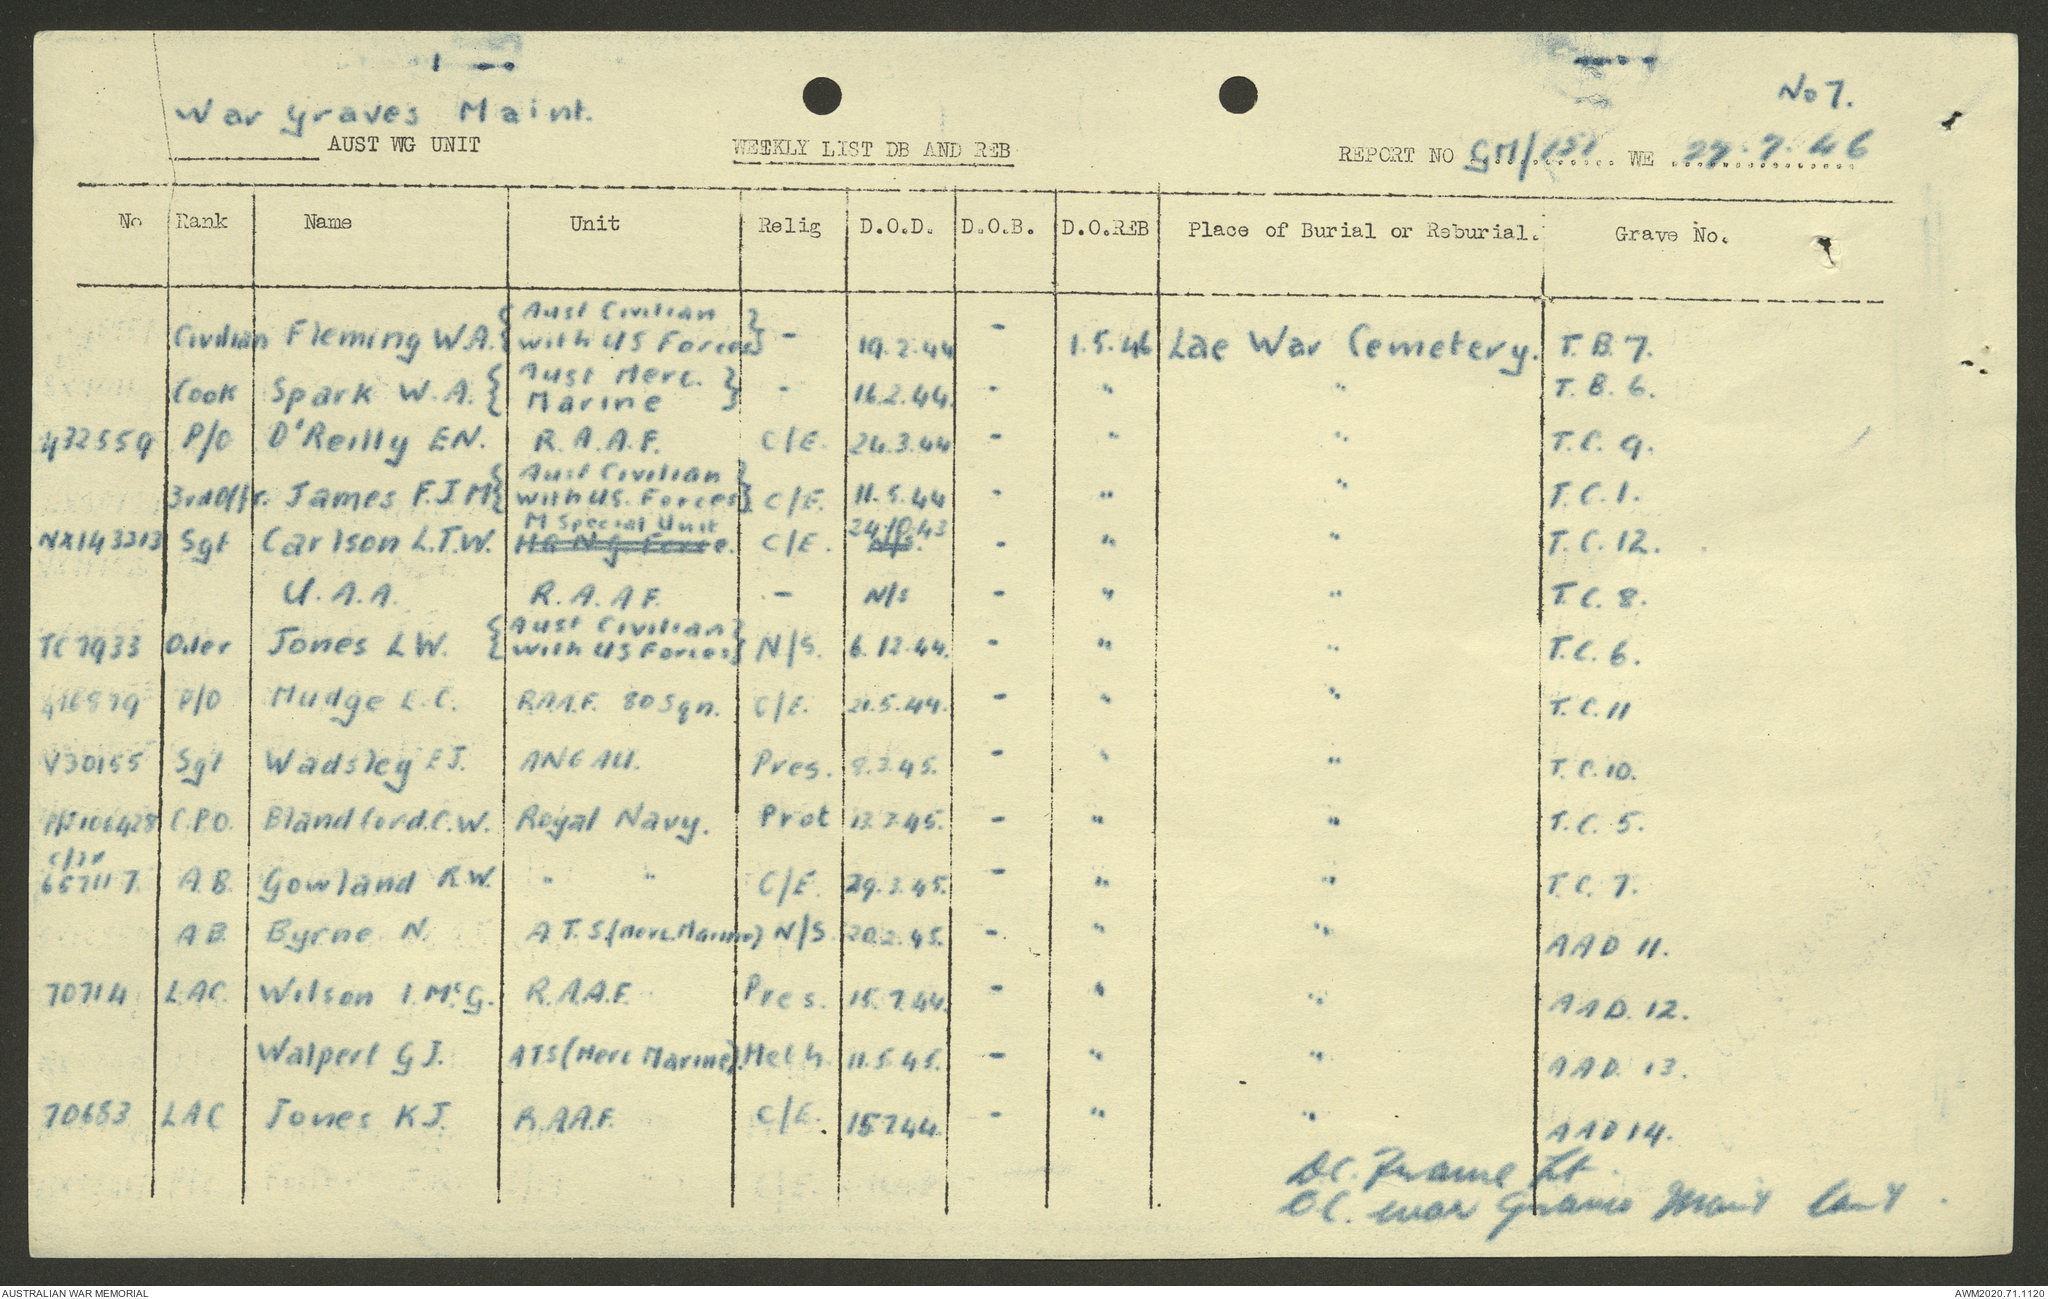 No 7.
War Graves Maint.
AUST WG UNIT WEEKLY LIST DB AND REB REPORT NO GM/151 WE 27.7.46
No Rank Name Unit Relig D.O.D. D.O.B. D.O.REB Place of Burial or Reburial. Grave No.
Civilian Fleming W.A. { Aust Civilian with US Forces } - 19.2.44 - 1.5.46 Lae War Cemetery. T.B.7.
Cook Spark W.A. { Aust Merc. Marine } - 16.2.44. - " " T.B.6.
432559 P/O O'Reilly E.N. R.A.A.F. C/E. 24.3.44 - " " T.C.9.
3rd Offr. James F.J.M { Aust Civilian with US. Forces } C/E. 11.5.44 - " " T.C.1.
NX143213 Sgt Carlson L.T.W. M Special Unit HQ N.G. Force. C/E. 24/10/43 N/S. - " " T.C.12.
U.A.A. R.A.A.F. - N/S - " " T.C.8.
TC7933 Oiler Jones L.W. { Aust Civilian with US Forces } N/S. 6.12.44. - " " T.C.6.
416879 P/O Mudge E.C. R.A.A.F. 80 Sqn. C/E. 21.5.44. - " " T.C.11
V30155 Sgt Wadsley E.J. ANGAU. Pres. 8.3.45. - " " T.C.10.
106428 C.P.O. Blandford.C.W. Royal Navy. Prot 13.7.45. - " " T.C.5.
657117. A.B. Gowland R.W. " " C/E. 29.3.45. - " " T.C.7.
A.B. Byrne N. A.T.S (Merc. Marine) N/S. 20.2.45. - " " AAD 11.
70714 LAC. Wilson I. McG. R.A.A.F. Pres. 15.7.44. - " " AAD.12.
Walpert G J. ATS (Merc Marine). Meth. 11.5.45. - " " AAD.13.
70683 LAC Jones K J. R.A.A.F. C/E. 15.7.44. - " " AAD 14.
Frame Lt.
OC. War Graves Maint Unit
AUSTRALIAN WAR MEMORIAL AWM2020.71.1120